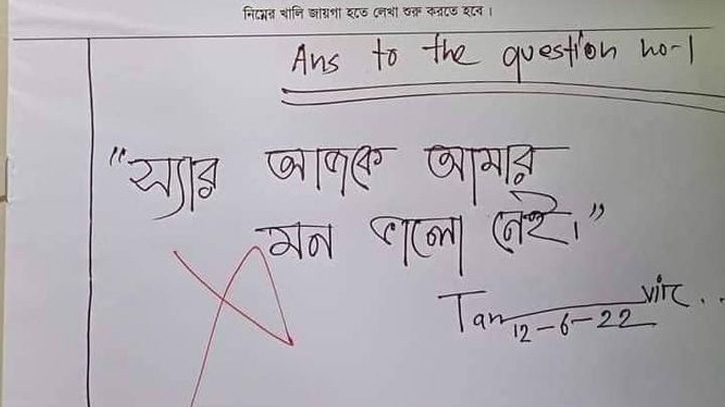 নিম্নের খালি জায়গা হতে লেখা শুরু করতে হবে।
Ans to the question no-1
"স্যার আজকে আমার
মন ভালো নেই।"
Tan vir..
12-6-22